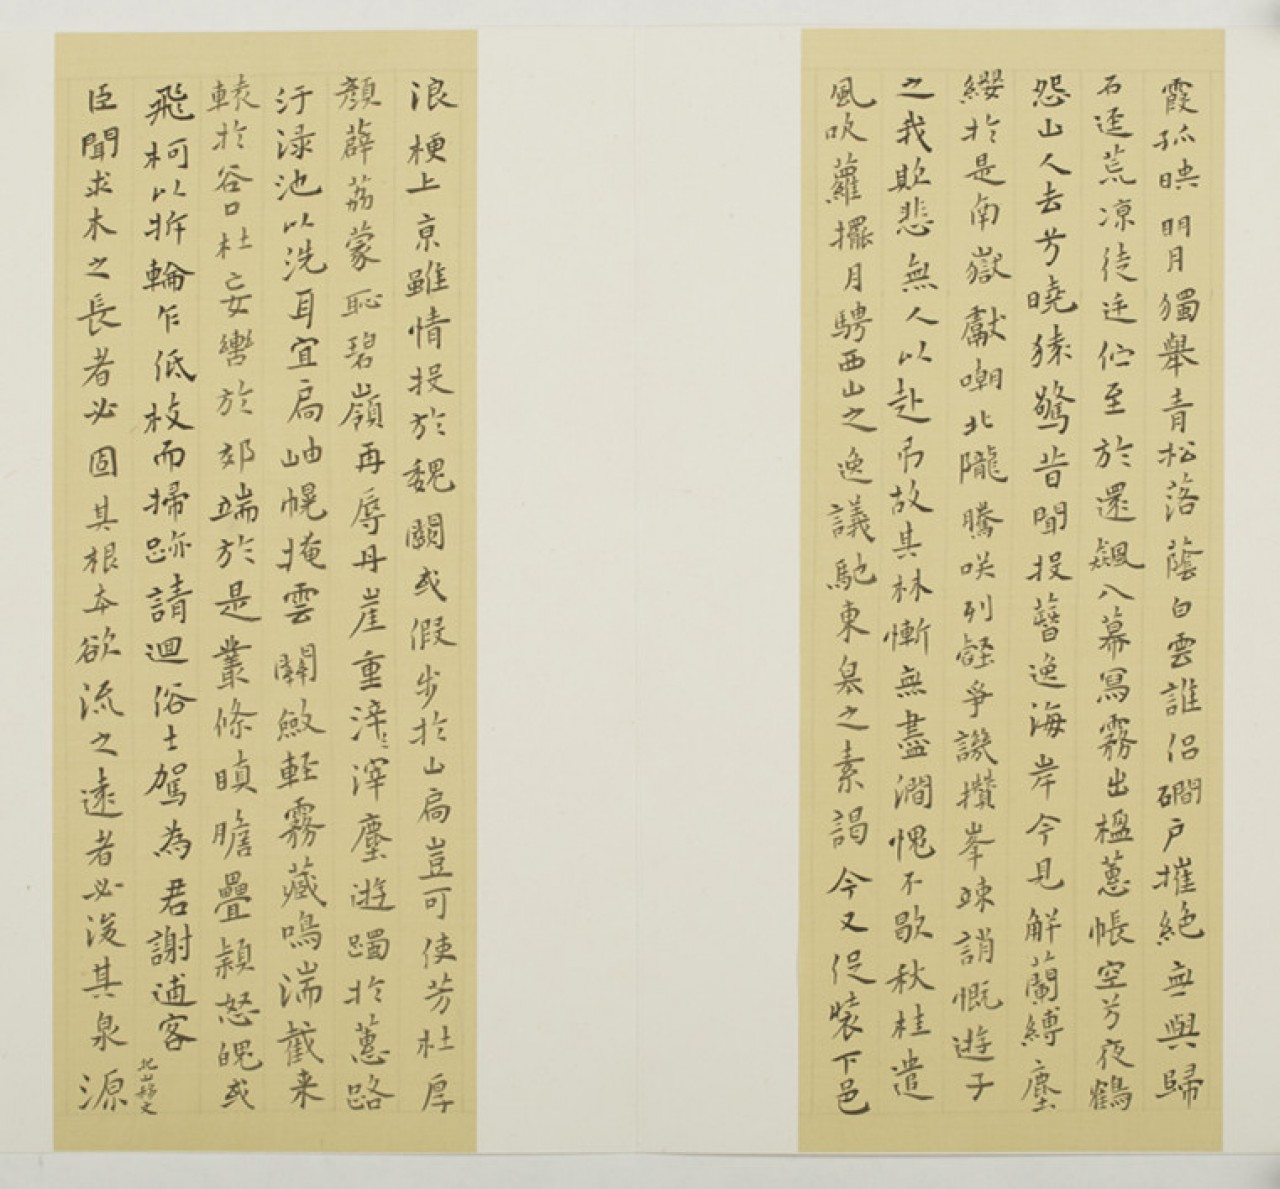 霞孤映明月獨舉青松落蔭白雲誰侣磵户摧絶无與歸
石逕荒凉徒延佇至於還飆入幕寫霧出楹蕙帳空兮夜鶴
怨山人去兮曉猨驚昔聞投簪逸海岸今見解蘭縛塵
纓於是南嶽獻嘲北隴騰咲列壑爭譏攢峯竦誚慨遊子
之我欺悲無人以赴弔故其林慚無盡澗愧不歇秋桂遣
風吹蘿擺月騁西山之逸議馳東皋之素謁今又促裝下邑
浪栧上京雖情投於魏闕或假步於山扃豈可使芳杜厚
顏薜荔蒙恥碧嶺再辱丹崖重滓滓塵遊躅於蕙路
汙淥池以洗耳宜扃岫幌掩雲關斂輕霧藏鳴湍截来
轅於谷口杜妄轡於郊端於是叢條瞋膽疊穎怒魄或
飛柯以折輪乍低枝而掃跡請迴俗士駕為君謝逋客
北山移文
臣聞求木之長者必固其根本欲流之遠者必浚其泉源